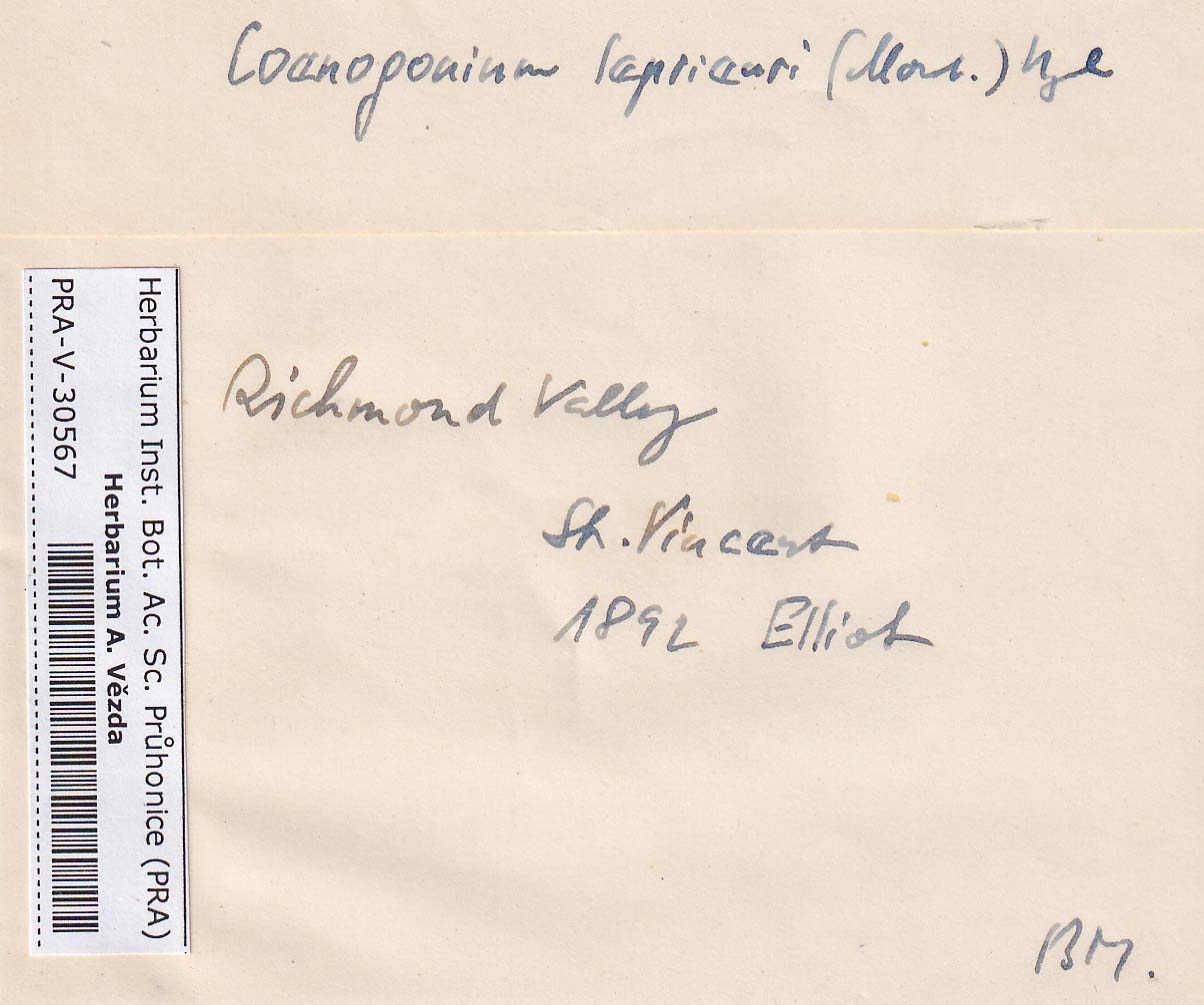 Coenogonium leprieuri (Mont.) Nyl
Richmond Valley
St. Vincent
1892 Elliot
BM.
Herbarium Inst. Bot. Ac. Sc. Průhonice (PRA)
Herbarium A. Vězda
PRA-V-30567